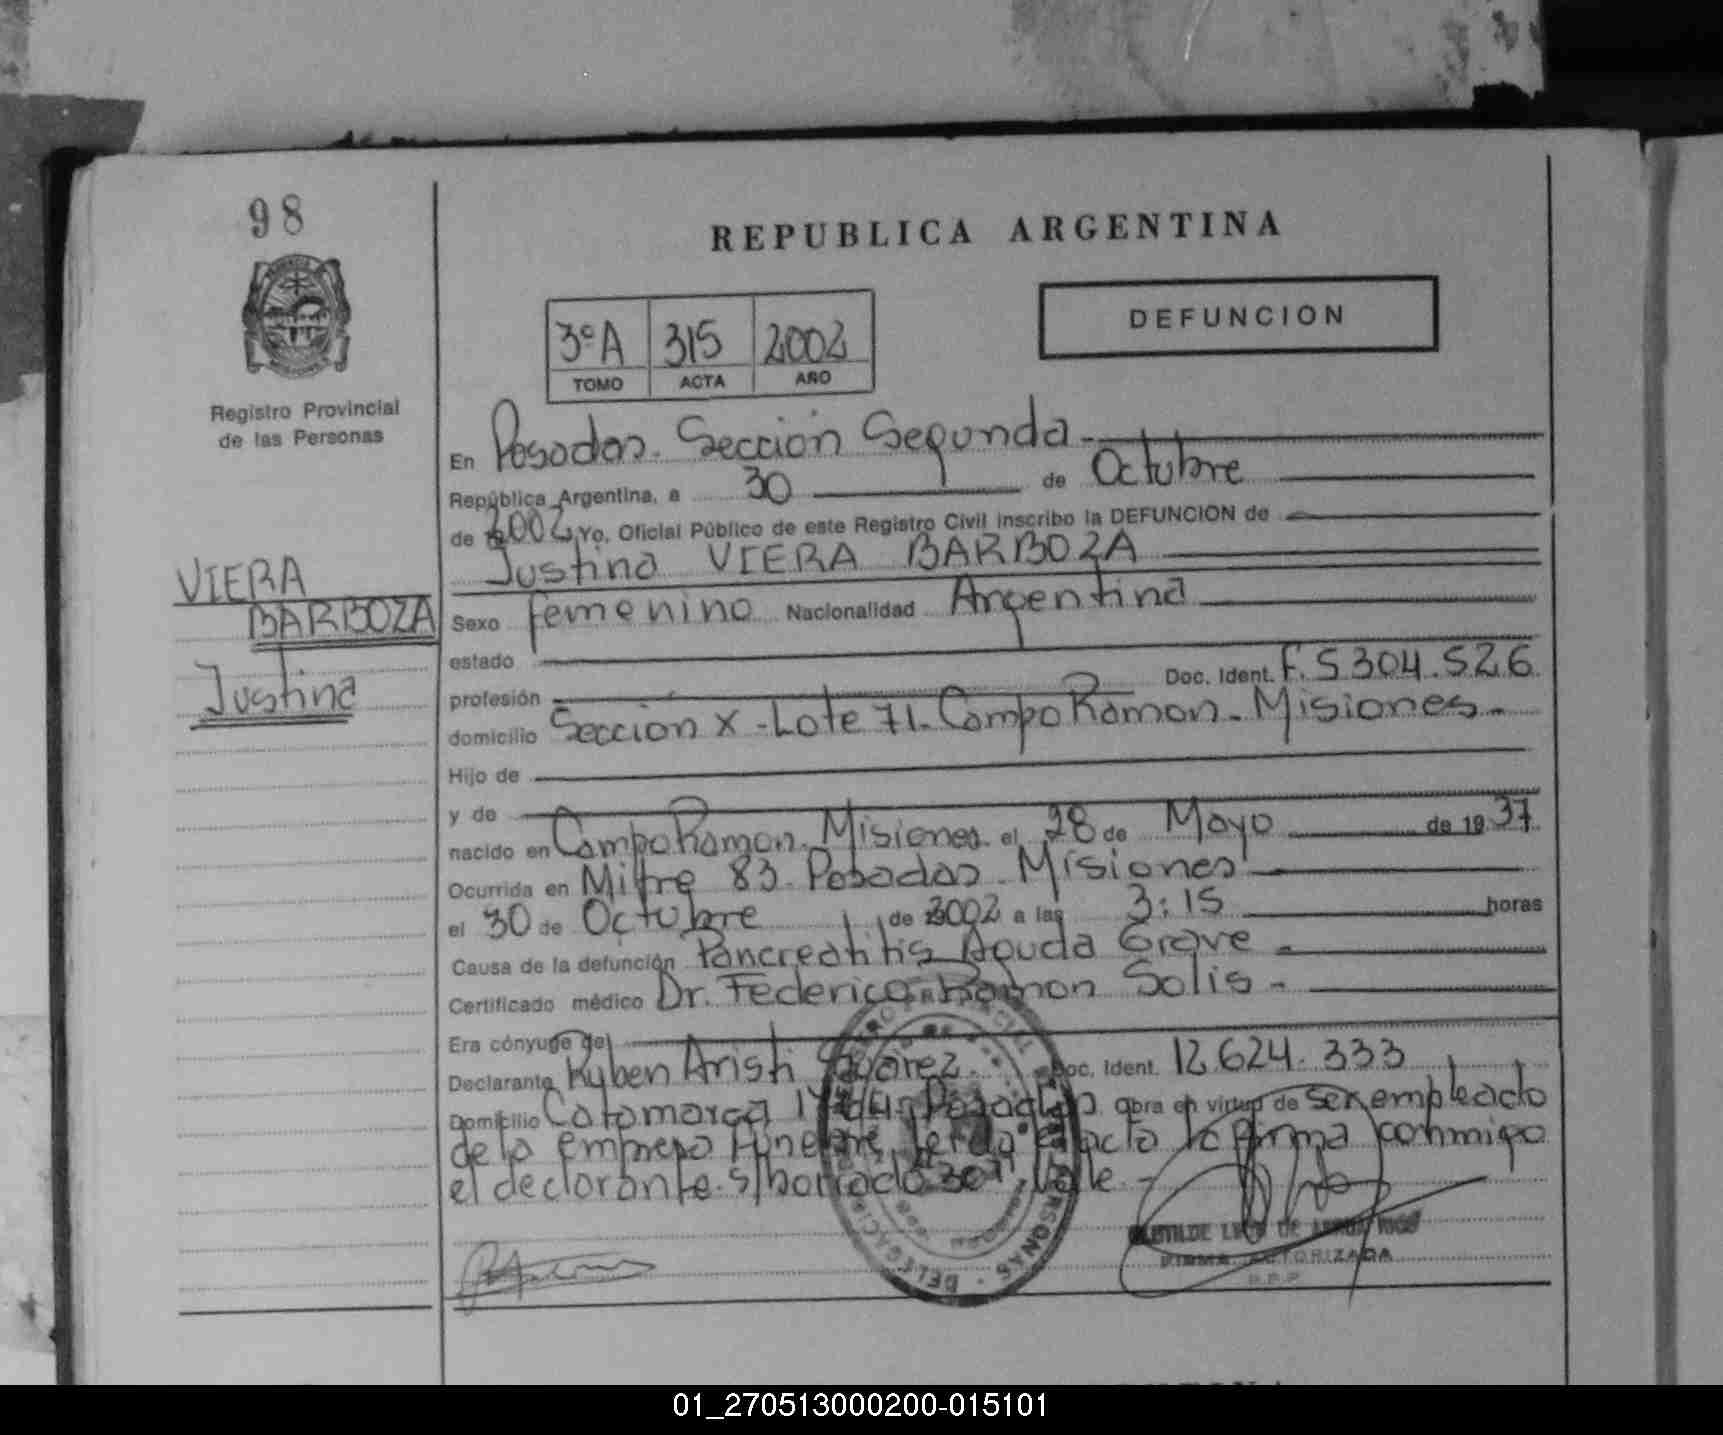 98
REPUBLICA ARGENTINA
DEFUNCION
3ºA 315 2002
TOMO ACTA AÑO
Registro Provincial
de las Personas
En Posadas. Sección Segunda.-
República Argentina, a 30 de Octubre
de 2002 Yo, Oficial Público de este Registro Civil inscribo la DEFUNCION de
Justina VIERA BARBOZA
VIERA
BARBOZA
Justina
Sexo femenino Nacionalidad Argentina
estado
Doc. Ident. F. 5304.526
profesión
domicilio Sección X - Lote 71. Campo Ramon. Misiones.
Hijo de
y de
nacido en Campo Ramon. Misiones. el 28 de Mayo de 1937
Ocurrida en Mitre 83. Posadas. Misiones
el 30 de Octubre de 2002 a las 3:15 horas
Causa de la defunción Pancreatitis Aguda Grave
Certificado médico Dr. Federico Ramon Solis -
Era cónyuge de
Declarante Ruben Aristi Doc. Ident. 12624.333
Domicilio Catamarca Posadas. obra en virtud de ser empleado
de la empresa Funebre, acta la firma conmigo
el declarante. s/borrado "30", Vale. -
FIRMA AUTORIZADA
R.P.P.
01_270513000200-015101